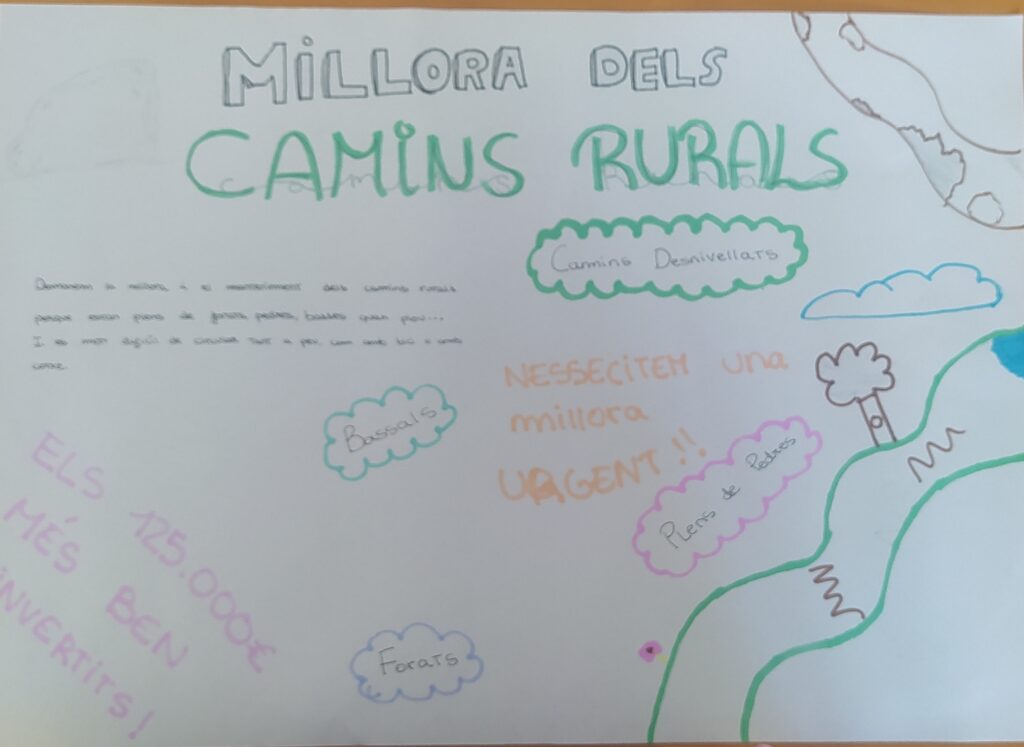 MILLORA DELS
CAMINS RURALS
Camins Desnivellats
Demanem la millora i el manteniment dels camins rurals
perque estan plens de forats, pedres, basses quan plou...
I es molt dificil de circular tant a peu, com amb bici o amb
cotxe.
NESSECITEM una
millora
URGENT!!
Bassals
Plens de Pedres
ELS 125.000€
MÉS BEN
INVERTITS!
Forats